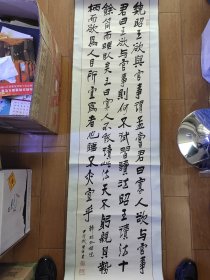 魏昭王欲與官事謂孟嘗君曰寡人欲與官事
君曰王欲與官事則何不試習讀法昭王讀法十
餘簡而睡臥矣王曰寡人不能讀此法夫不躬親其勢
柄而欲為人臣所宜為者也睡不亦宜乎